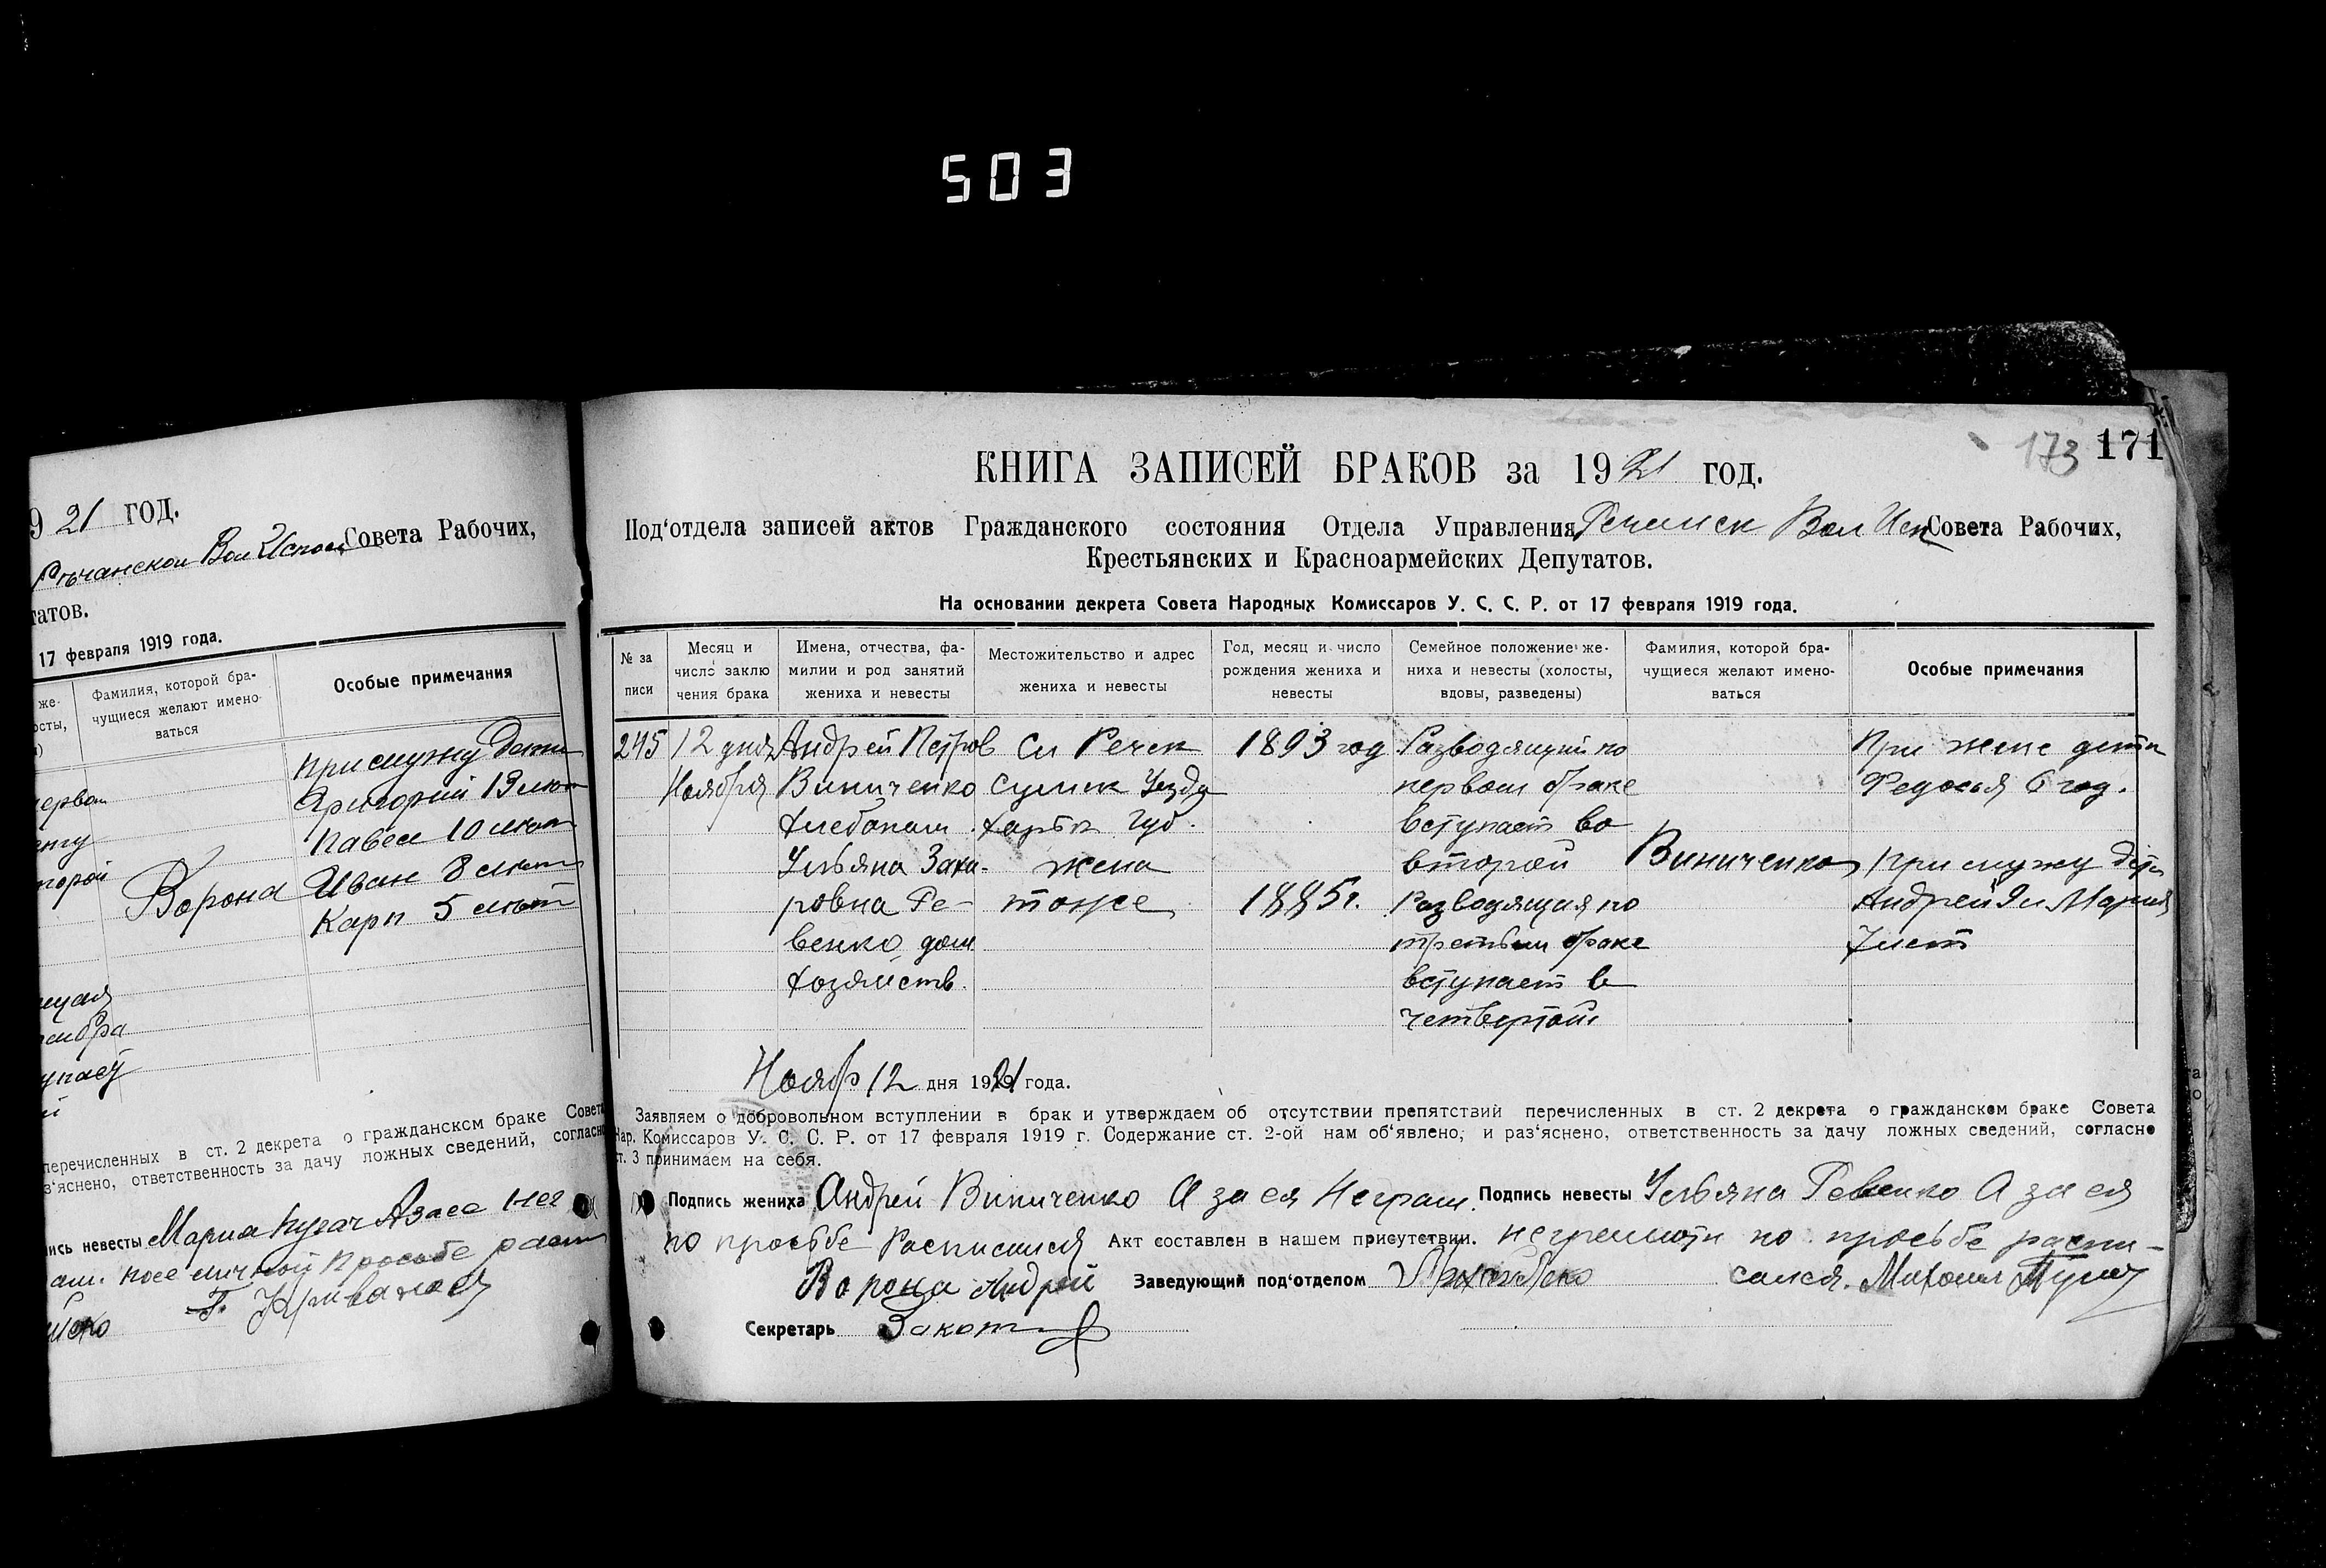 503
9 21 ГОД.
Речанской Вол Испол Совета Рабочих,
татов.
17 февраля 1919 года.
же-
осты,
Фамилия, которой бра-
чущиеся желают имено-
ваться
Особые примечания
при мужу Дети
Григорий 13 лет
Павел 10 лет
Иван 8 лет
Карп 5 лет
Ворона
перечисленных в ст. 2 декрета о гражданском браке Совета
з'яснено, ответственность за дачу ложных сведений, согласно
ись невесты Мария
173 171
КНИГА ЗАПИСЕЙ БРАКОВ за 1921 год.
Под'отдела записей актов Гражданского состояния Отдела Управления Речанск Вол Исп Совета Рабочих,
Крестьянских и Красноармейских Депутатов.
На основании декрета Совета Народных Комиссаров У. С. С. Р. от 17 февраля 1919 года.
№ за
писи
Месяц и
число заклю
чения брака
Имена, отчества, фа-
милии и род занятий
жениха и невесты
Местожительство и адрес
жениха и невесты
Год, месяц и число
рождения жениха и
невесты
Семейное положение же-
ниха и невесты (холосты,
вдовы, разведены)
Фамилия, которой бра-
чущиеся желают имено-
ваться
Особые примечания
245
12 дня
Ноября
Андрей Петров
Виниченко
хлебопаш.
Ульяна Заха-
ровна Ре-
венко дом
хозяйств.
Сл Речек
Сумск Уезда
Харьк Губ.
жена
тоже
1893 год
1885 г.
Разводящий по
первом браке
вступает во
второй
Разводящая по
третьем браке
вступает в
четвертый
Виниченко
При жене дети
Федосья 6 год.
при мужу діти
Андрей 9 л Мария
7 лет
Ноябр 12 дня 1921 года.
Заявляем о добровольном вступлении в брак и утверждаем об отсутствии препятствий перечисленных в ст. 2 декрета о гражданском браке Совета
Нар. Комиссаров У. С. С. Р. от 17 февраля 1919 г. Содержание ст. 2-ой нам об'явлено, и раз'яснено, ответственность за дачу ложных сведений, согласно
ст. 3 принимаем на себя.
Подпись жениха Андрей Виниченко А за ея Неграм. Подпись невесты Ульяна Ревенко А за ея
по просьбе Росписался Акт составлен в нашем присутствии. неграмоти по просьбе распи-
Ворона Андрей Заведующий под'отделом сался. Михаил
Секретарь